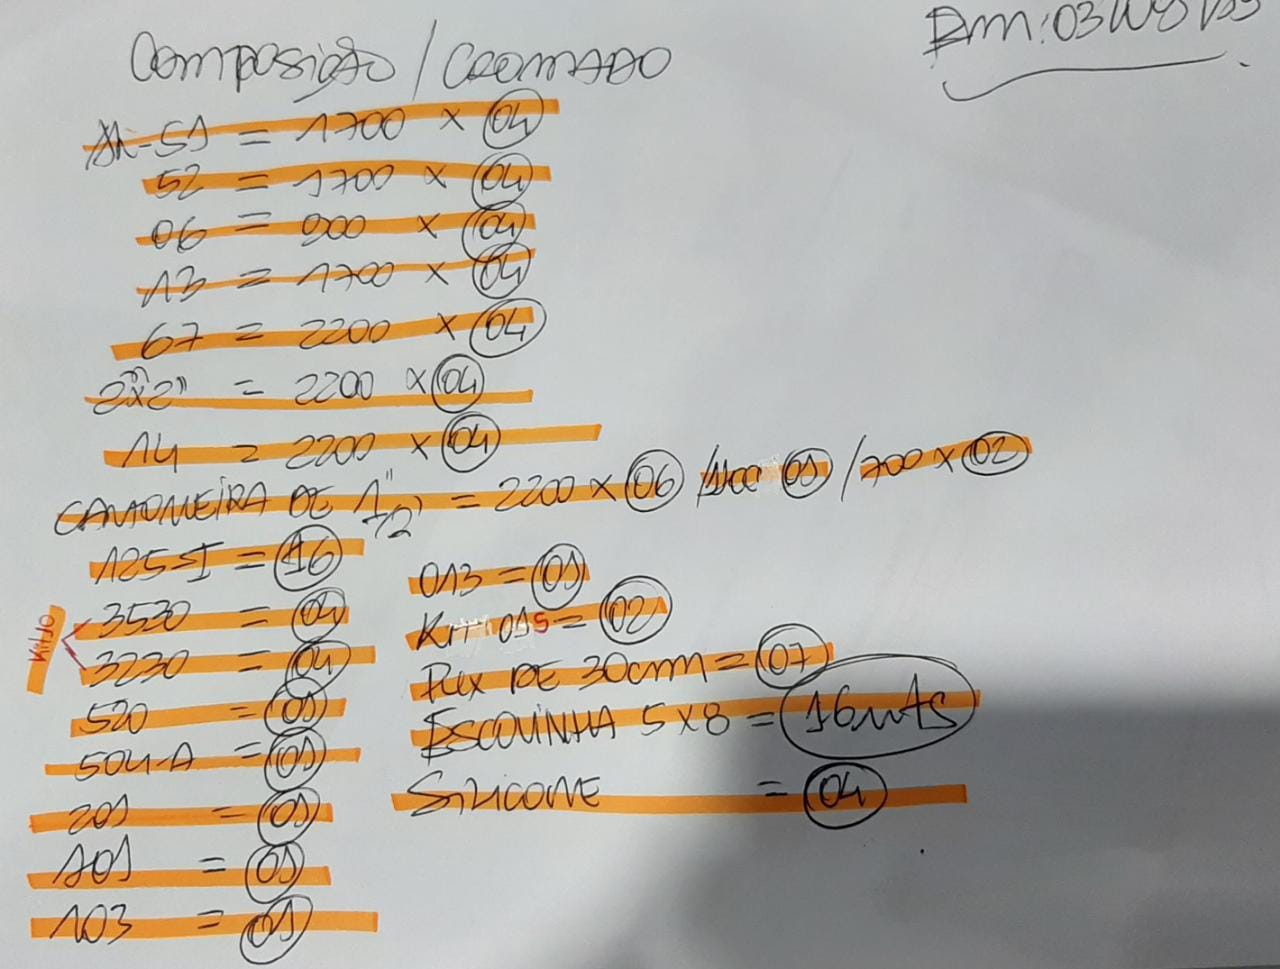 Composição / Cromado
AL-51 = 1700 x 04
52 = 1700 x 04
06 = 900 x 04
13 = 1700 x 04
67 = 2200 x 04
2"x2" = 2200 x 04
14 = 2200 x 04
CANTONEIRA DE 1" 1/2" = 2200 x 06 / 01 / 700 x 02
125-I = 16
3530 = 04
KITO
3230 = 04
520 = 01
504-A = 01
201 = 01
101 = 01
103 = 01
013 = 01
Kit 015 = 02
DE 30cm = 07
ESCOVINHA 5x8 = 16mts
SILICONE = 04